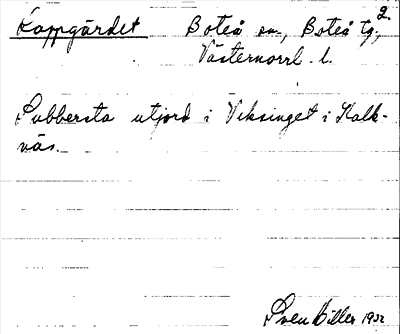 2.
Kappgärdet Boteå sn, Boteå tg,
Västernorrl. l.
Subbersta utjord i Viksinget i Kalk-
näs.
Sven Hiller 1932